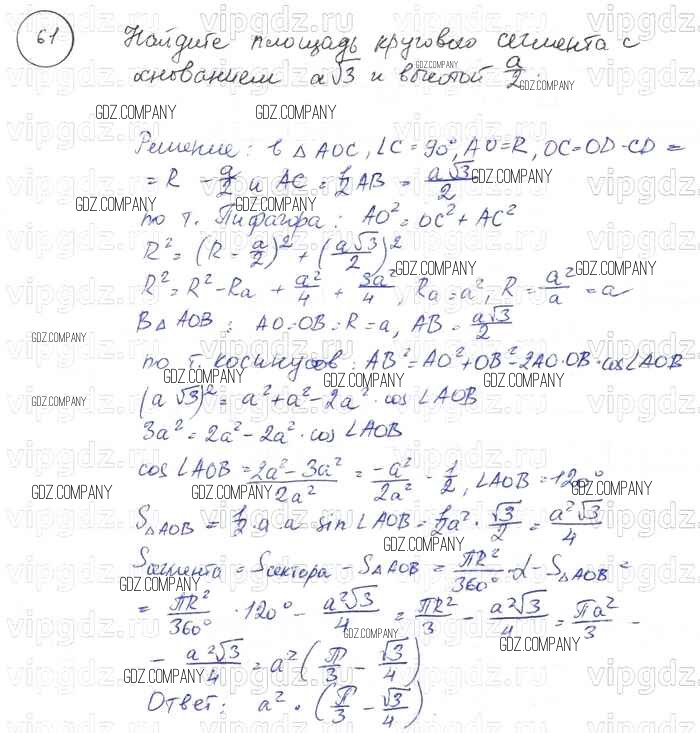 61
Найдите площадь кругового сегмента с
основанием a√3 и высотой a/2.
Решение: в △AOC, ∠C = 90°, AO = R, OC = OD - CD =
= R - a/2 и AC = 1/2 AB = a√3/2
по т. Пифагора: AO² = OC² + AC²
R² = (R - a/2)² + (a√3/2)²
R² = R² - Ra + a²/4 + 3a²/4, Ra = a², R = a²/a = a
В △AOB: AO = OB = R = a, AB = a√3/2
по т. косинусов: AB² = AO² + OB² - 2AO·OB·cos∠AOB
(a√3)² = a² + a² - 2a²·cos∠AOB
3a² = 2a² - 2a²·cos∠AOB
cos∠AOB = 2a² - 3a²/2a² = -a²/2a² - 1/2, ∠AOB = 120°
S△AOB = 1/2·a·a sin∠AOB = 1/2a²·√3/2 = a²√3/4
Sсегмента = Sсектора - S△AOB = ПR²/360°·α - S△AOB =
= ПR²/360°·120° - a²√3/4 = ПR²/3 - a²√3/4 = Пa²/3 -
- a²√3/4 = a²(П/3 - √3/4)
Ответ: a²·(П/3 - √3/4)
GDZ.COMPANY
vipgdz.com